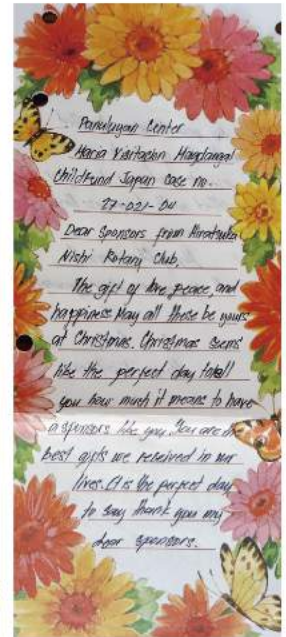 Panuluyan Center
Maria Visitacion Magdangal
Childfund Japan case no.
27-021-04
Dear Sponsors from Hiratsuka
Nishi Rotary Club,
The gift of love peace, and
happiness May all these be yours
at Christmas. Christmas seems
like the perfect day to tell
you how much it means to have
a sponsors like you. You are the
best gifts we received in our
lives. It is the perfect day
to say thank you my
dear sponsors.